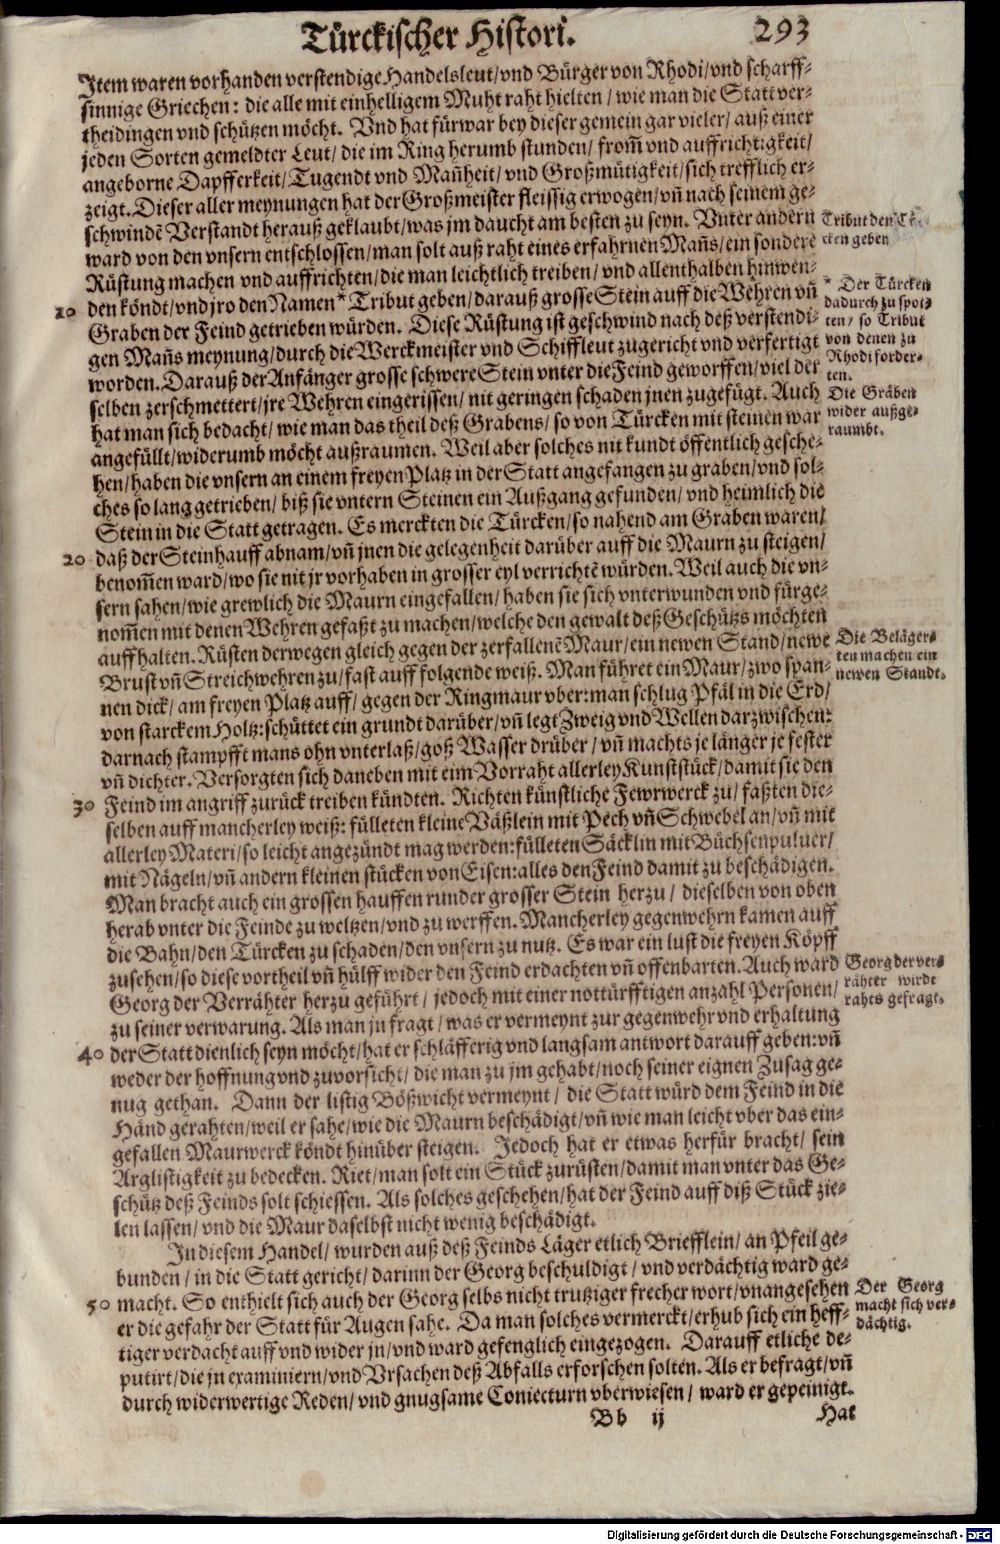 Türckischer Histori. 293
Item waren vorhanden verstendige Handelsleut/ vnd Bürger von Rhodi/ vnd scharff-
sinnige Griechen: die alle mit einhelligem Muht raht hielten / wie man die Statt ver-
theidingen vnd schützen möcht. Vnd hat fürwar bey dieser gemein gar vieler/ auß einer
jeden Sorten gemeldter Leut/ die im Ring herumb stunden/ from̃ vnd auffrichtigkeit/
angeborne Dapfferkeit/ Tugendt vnd Mañheit/ vnd Großmütigkeit/ sich trefflich er-
zeigt. Dieser aller meynungen hat der Großmeister fleissig erwogen/ vñ nach seinem ge-
schwindẽ Verstandt herauß geklaubt/ was jm daucht am besten zu seyn. Vnter andern
ward von den vnsern entschlossen/ man solt auß raht eines erfahrnen Mañs/ ein sondere
Rüstung machen vnd auffrichten/ die man leichtlich treiben/ vnd allenthalben hinwen-
10 den köndt/ vnd jro den Namen* Tribut geben/ darauß grosse Stein auff die Wehren vñ
Graben der Feind getrieben würden. Diese Rüstung ist geschwind nach deß verstendi-
gen Mañs meynung/ durch die Werckmeister vnd Schiffleut zugericht vnd verfertigt
worden. Darauß der Anfänger grosse schwere Stein vnter die Feind geworffen/ viel der
selben zerschmettert/ jre Wehren eingerissen/ nit geringen schaden jnen zugefügt. Auch
hat man sich bedacht/ wie man das theil deß Grabens/ so von Türcken mit steinen war
angefüllt/ widerumb möcht außraumen. Weil aber solches nit kundt öffentlich gesche-
hen/ haben die vnsern an einem freyen Platz in der Statt angefangen zu graben/ vnd sol-
ches so lang getrieben/ biß sie vntern Steinen ein Außgang gefunden/ vnd heimlich die
Stein in die Statt getragen. Es merckten die Türcken/ so nahend am Graben waren/
20 daß der Steinhauff abnam/ vñ jnen die gelegenheit darüber auff die Maurn zu steigen/
benom̃en ward/ wo sie nit jr vorhaben in grosser eyl verrichtẽ würden. Weil auch die vn-
sern sahen/ wie grewlich die Maurn eingefallen/ haben sie sich vnterwunden vnd fürge-
nom̃en mit denen Wehren gefaßt zu machen/ welche den gewalt deß Geschützs möchten
auffhalten. Rüsten derwegen gleich gegen der zerfallenẽ Maur/ ein newen Stand/ newe
Brust vñ Streichwehren zu/ fast auff folgende weiß. Man führet ein Maur/ zwo span-
nen dick/ am freyen Platz auff/ gegen der Ringmaur vber: man schlug Pfäl in die Erd/
von starckem Holtz: schüttet ein grundt darüber/ vñ legt Zweig vnd Wellen darzwischen:
darnach stampfft mans ohn vnterlaß/ goß Wasser drüber / vñ machts je länger je fester
vñ dichter. Versorgten sich daneben mit eim Vorraht allerley Kunststück/ damit sie den
30 Feind im angriff zurück treiben kündten. Richten künstliche Fewrwerck zu/ faßten die-
selben auff mancherley weiß: fülleten kleine Väßlein mit Pech vñ Schwebel an/ vñ mit
allerley Materi/ so leicht angezündt mag werden: fülleten Säcklin mit Büchsenpuluer/
mit Nägeln/ vñ andern kleinen stücken von Eisen: alles den Feind damit zu beschädigen.
Man bracht auch ein grossen hauffen runder grosser Stein herzu / dieselben von oben
herab vnter die Feinde zu weltzen/ vnd zu werffen. Mancherley gegenwehrn kamen auff
die Bahn/ den Türcken zu schaden/ den vnsern zu nutz. Es war ein lust die freyen Köpff
zusehen/ so diese vortheil vñ hülff wider den Feind erdachten vñ offenbarten. Auch ward
Georg der Verrähter herzu geführt / jedoch mit einer nottürfftigen anzahl Personen/
zu seiner verwarung. Als man jn fragt / was er vermeynt zur gegenwehr vnd erhaltung
40 der Statt dienlich seyn möcht/ hat er schläfferig vnd langsam antwort darauff geben: vñ
weder der hoffnung vnd zuvorsicht/ die man zu jm gehabt/ noch seiner eignen Zusag ge-
nug gethan. Dann der listig Bößwicht vermeynt / die Statt würd dem Feind in die
Händ gerahten/ weil er sahe/ wie die Maurn beschädigt/ vñ wie man leicht vber das ein-
gefallen Maurwerck köndt hinüber steigen. Jedoch hat er etwas herfür bracht/ sein
Arglistigkeit zu bedecken. Riet/ man solt ein Stück zurüsten/ damit man vnter das Ge-
schütz deß Feinds solt schiessen. Als solches geschehen/ hat der Feind auff diß Stück zie-
len lassen/ vnd die Maur daselbst nicht wenig beschädigt.
In diesem Handel/ wurden auß deß Feinds Läger etlich Brieffllein/ an Pfeil ge-
bunden / in die Statt gericht/ darinn der Georg beschuldigt / vnd verdächtig ward ge-
50 macht. So enthielt sich auch der Georg selbs nicht trutziger frecher wort/ vnangesehen
er die gefahr der Statt für Augen sahe. Da man solches vermerckt/ erhub sich ein heff-
tiger verdacht auff vnd wider jn/ vnd ward gefenglich eingezogen. Darauff etliche de-
putirt/ die jn examiniern/ vnd Vrsachen deß Abfalls erforschen solten. Als er befragt/ vñ
durch widerwertige Reden/ vnd gnugsame Coniecturn vberwiesen / ward er gepeinigt.
Bb ij Hat
Tribut den
cken geben
* Der Türcken
dadurch zu spot-
ten/ so Tribut
von denen zu
Rhodi forder-
ten.
Die Gräben
wider außge-
raumbt.
Die Beläger-
ten machen ein
newen Standt.
Georg der ver-
rähter wirdt
rahts gefragt.
Der Georg
macht sich ver-
dächtig.
Digitalisierung gefördert durch die Deutsche Forschungsgemeinschaft - DFG